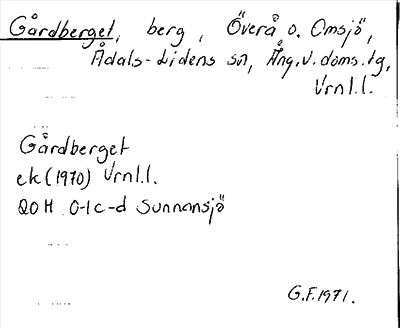 Gårdberget, berg, Överå o. Omsjö,
Ådals-Lidens sn, Ång.v.doms.tg,
Vrnl.l.
Gårdberget
ek (1970) Vrnl.l.
20H 0-1c-d Sunnansjö
G.F.1971.